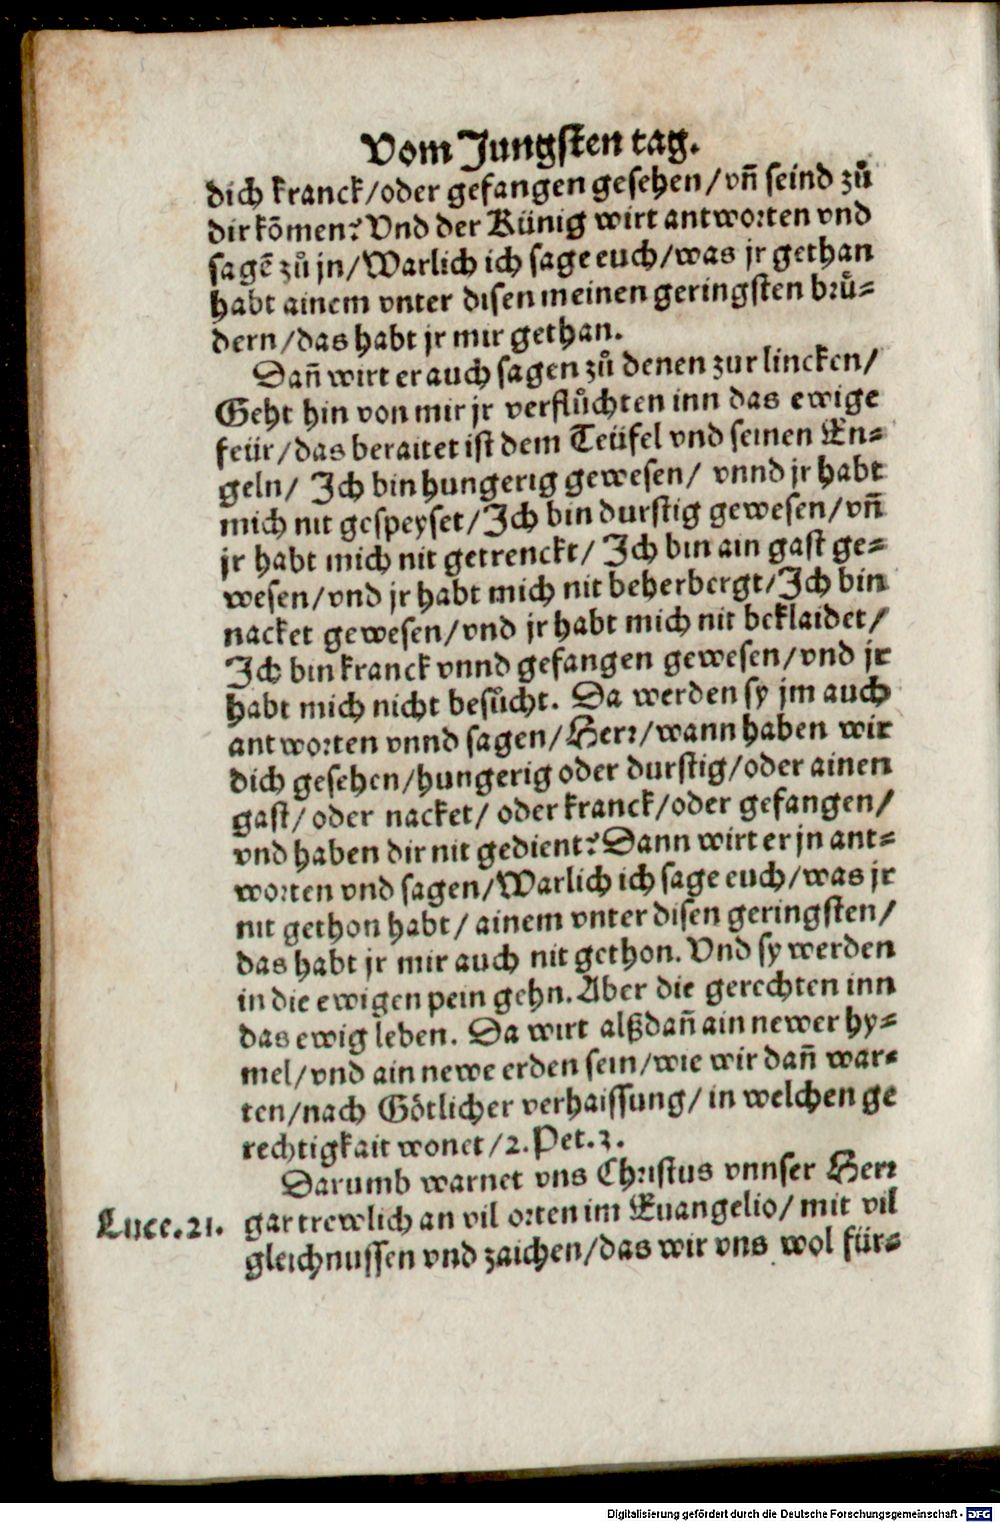 Vom Jungsten tag.
dich kranck/oder gefangen gesehen/vñ seind zů
dir kõmen? Vnd der Künig wirt antworten vnd
sagẽ zů jn/Warlich ich sage euch/was jr gethan
habt ainem vnter disen meinen geringsten brů=
dern/das habt jr mir gethan.
Dañ wirt er auch sagen zů denen zur lincken/
Geht hin von mir jr verflůchten inn das ewige
feür/das beraitet ist dem Teüfel vnd seinen En=
geln/ Ich bin hungerig gewesen/ vnnd jr habt
mich nit gespeyset/Ich bin durstig gewesen/vñ
jr habt mich nit getrenckt/ Ich bin ain gast ge=
wesen/vnd jr habt mich nit beherbergt/Ich bin
nacket gewesen/vnd jr habt mich nit beklaidet/
Ich bin kranck vnnd gefangen gewesen/vnd jr
habt mich nicht besůcht. Da werden sy jm auch
antworten vnnd sagen/Herr/wann haben wir
dich gesehen/hungerig oder durstig/oder ainen
gast/oder nacket/ oder kranck/oder gefangen/
vnd haben dir nit gedient? Dann wirt er jn ant=
worten vnd sagen/Warlich ich sage euch/was jr
nit gethon habt/ ainem vnter disen geringsten/
das habt jr mir auch nit gethon. Vnd sy werden
in die ewigen pein gehn. Aber die gerechten inn
das ewig leben. Da wirt alßdañ ain newer hy=
mel/vnd ain newe erden sein/wie wir dañ war=
ten/nach Götlicher verhaissung/in welchen ge
rechtigkait wonet/2. Pet.3.
Darumb warnet vns Christus vnnser Herr
Luce.21. gar trewlich an vil orten im Euangelio/ mit vil
gleichnussen vnd zaichen/das wir vns wol für=
Digitalisierung gefördert durch die Deutsche Forschungsgemeinschaft - DFG